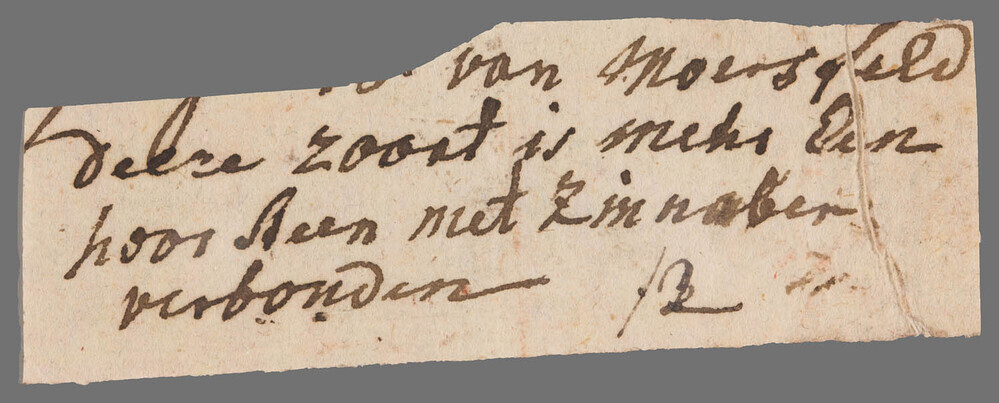 van Moersfeld
deeze zoort is mehr Een
hoor Steen met Zinnober
verbonden